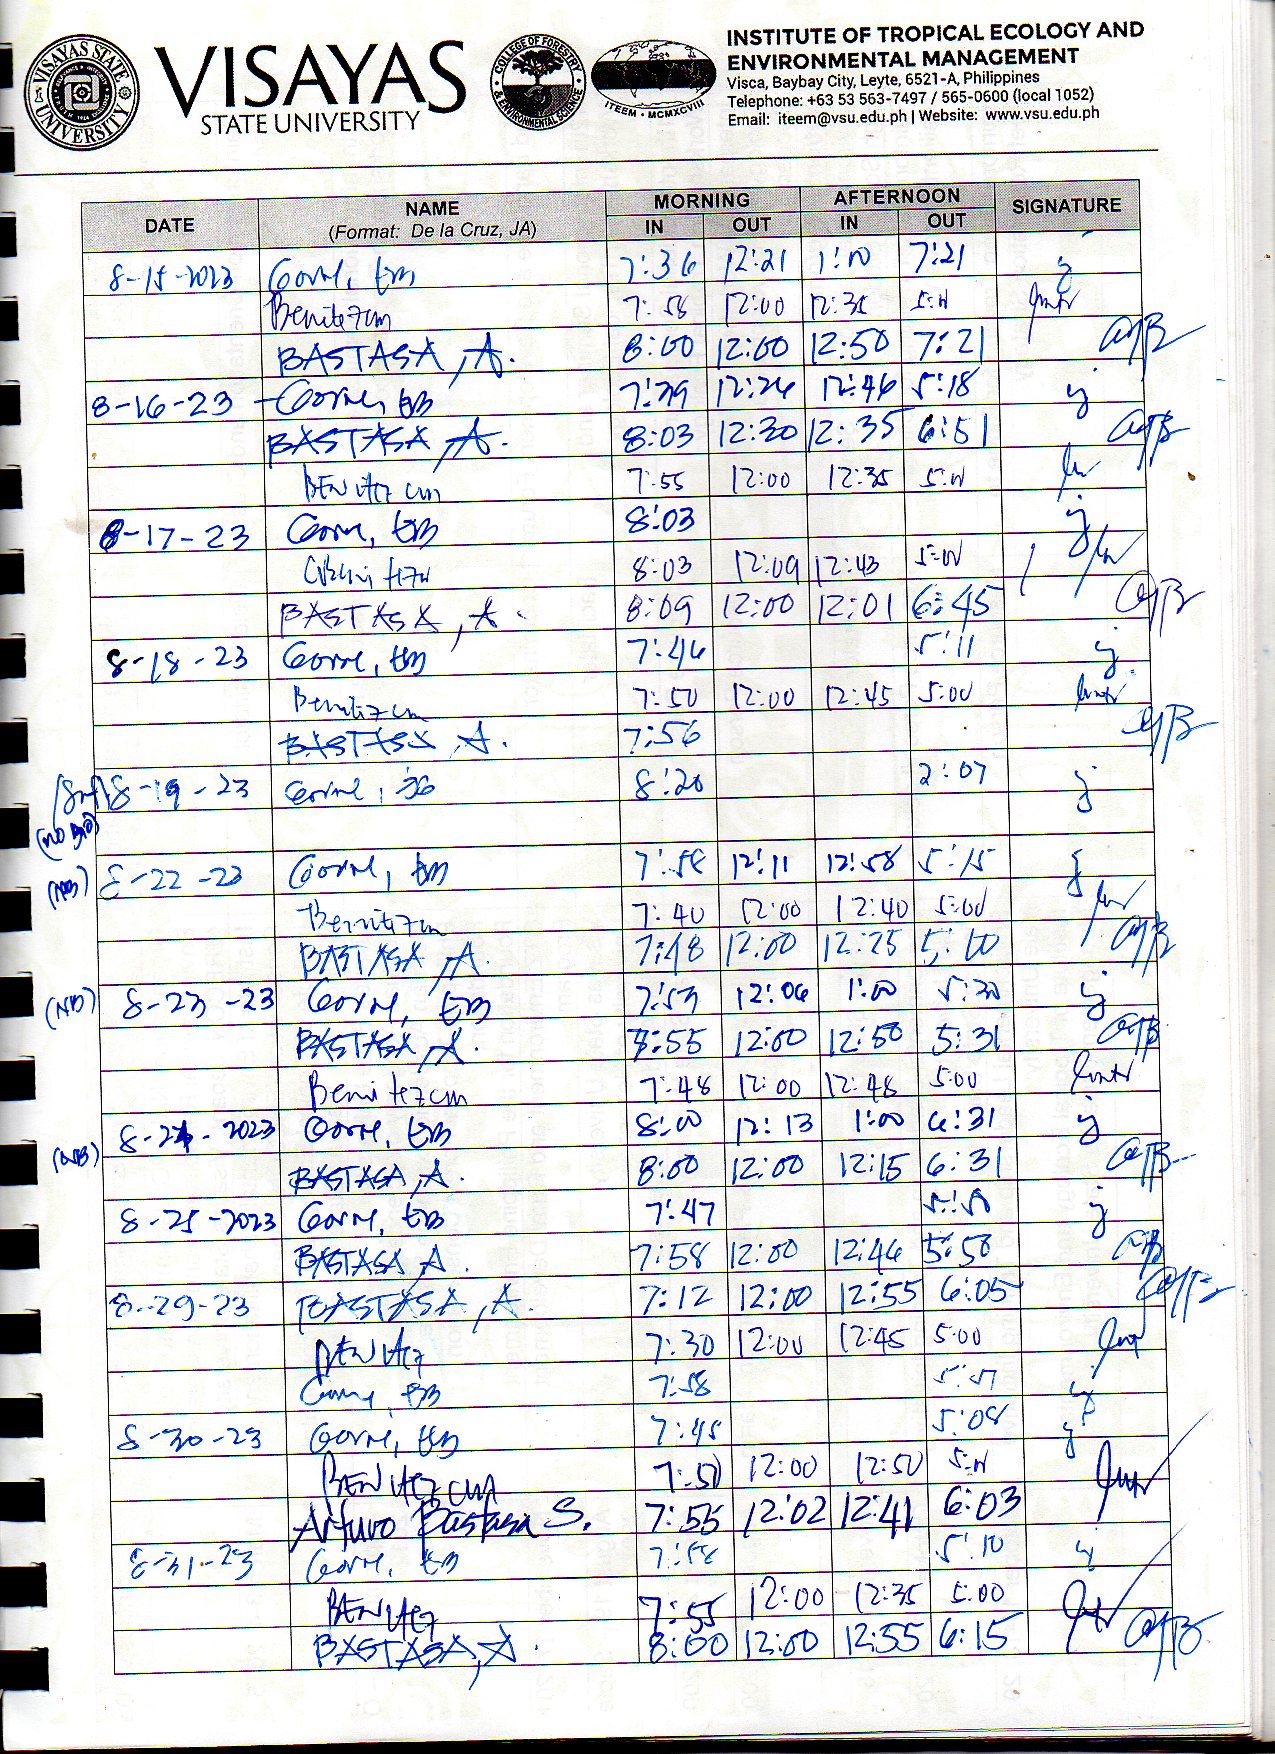 VISAYAS
STATE UNIVERSITY
VISAYAS STATE UNIVERSITY
COLLEGE OF FORESTRY & ENVIRONMENTAL SCIENCE
ITEEM • MCMXCVIII
INSTITUTE OF TROPICAL ECOLOGY AND
ENVIRONMENTAL MANAGEMENT
Visca, Baybay City, Leyte, 6521-A, Philippines
Telephone: +63 53 563-7497 / 565-0600 (local 1052)
Email: iteem@vsu.edu.ph | Website: www.vsu.edu.ph
DATE NAME MORNING AFTERNOON SIGNATURE
(Format: De la Cruz, JA) IN OUT IN OUT
8-15-2023 Gorne, EB 7:36 12:21 1:00 7:21
Benitez cm 7:58 12:00 12:35 5:00
BASTASA, A. 8:00 12:00 12:50 7:21
8-16-23 Gorne, EB 7:29 12:26 12:46 5:18
BASTASA, A. 8:03 12:30 12:35 6:51
BENITEZ cm 7:55 12:00 12:35 5:00
8-17-23 Gorne, EB 8:03
Benitez 8:03 12:09 12:43 5:00
BASTASA, A. 8:09 12:00 12:01 6:45
8-18-23 Gorne, EB 7:46 5:11
Benitez cm 7:50 12:00 12:45 5:00
BASTASA, A. 7:56
(Sat) 8-19-23 Gorne, 8:20 2:07
(NO BIO)
(NB) 8-22-23 Gorne, EB 7:58 12:11 12:58 5:15
Benitez cm 7:40 12:00 12:40 5:00
BASTASA, A. 7:48 12:00 12:25 5:10
(NB) 8-23-23 Gorne, EB 7:53 12:06 1:00 5:30
BASTASA, A. 7:55 12:00 12:50 5:31
Benitez cm 7:48 12:00 12:48 5:00
8-24-2023 Gorne, EB 8:00 12:13 1:00 6:31
(NB) BASTASA, A. 8:00 12:00 12:15 6:31
8-25-2023 Gorne, EB 7:47
BASTASA, A. 7:58 12:00 12:46 5:50
8-29-23 BASTASA, A. 7:12 12:00 12:55 6:05
BENITEZ 7:30 12:00 12:45 5:00
Gorne, EB 7:58
8-30-23 Gorne, EB 7:45 5:08
BENITEZ cm 7:50 12:00 12:50 5:00
Arturo Bastasa S. 7:55 12:02 12:41 6:03
8-31-23 Gorne, EB 7:58 5:10
BENITEZ 7:55 12:00 12:35 5:00
BASTASA, A. 8:00 12:00 12:55 6:15